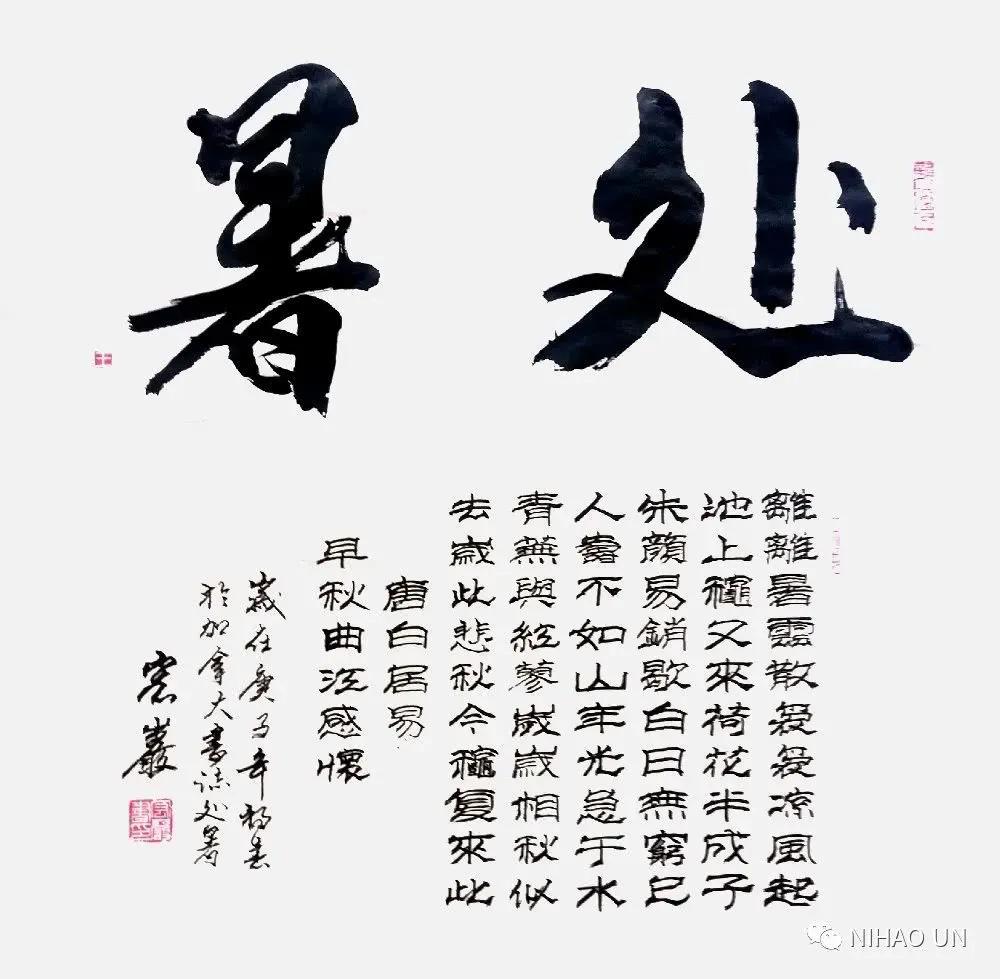 处暑
離離暑雲散袅袅凉風起
池上穐又來荷花半成子
朱顏易銷歇白日無窮已
人壽不如山年光急于水
青蕪與紅蓼歲歲相秋似
去歲此悲秋今穐复來此
唐白居易
早秋曲江感懷
歲在庚子年初春
於加拿大書誌处暑
巖
NIHAO UN